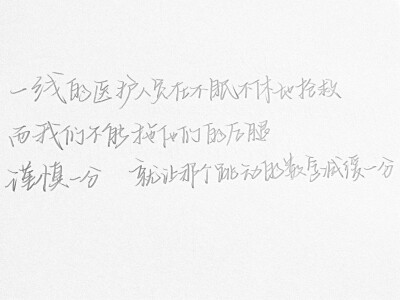 一线的医护人员在不眠不休地抢救
而我们不能拖他们的后腿
谨慎一分 就让那个跳动的数字减缓一分